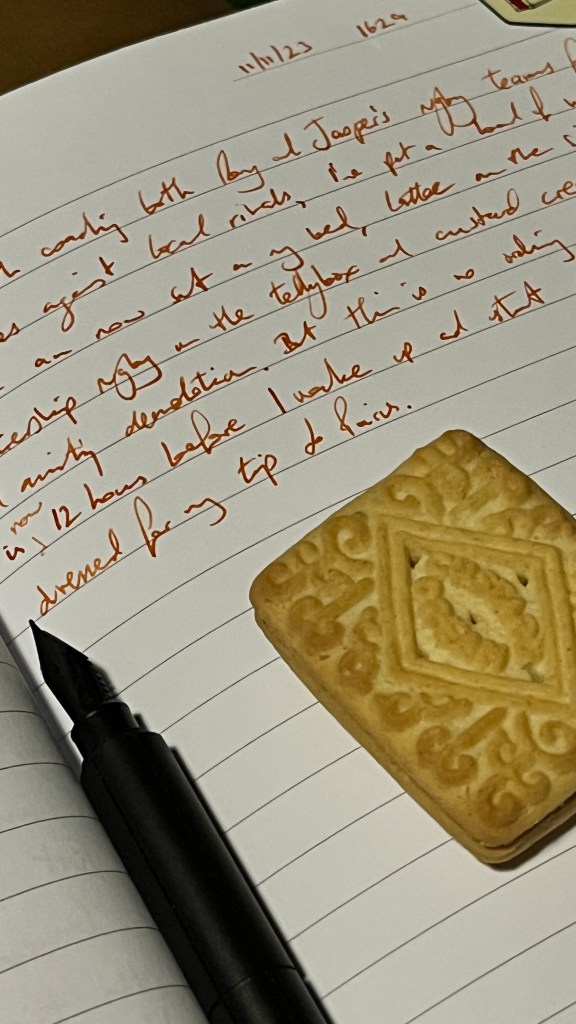 11/11/23 1629
coaching both Rory and Jasper's rugby teams
against local rivals, I've put a load of
am now sat on my bed, lottee on the
rugby on the tellybox and custard cre
awaiting demolition. But this is no ordinary
is now 12 hours before I wake up and start
dressed for my trip to Paris.